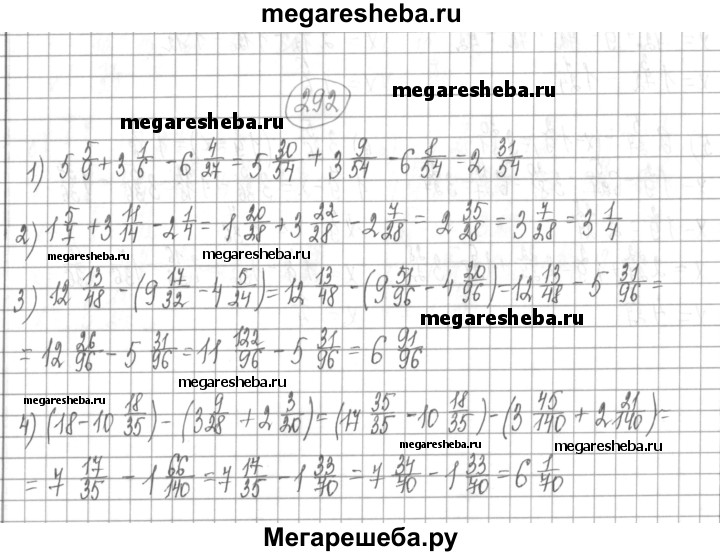 megaresheba.ru
292
megaresheba.ru
megaresheba.ru
1) 5 5/9 + 3 1/6 - 6 4/27 = 5 30/54 + 3 9/54 - 6 8/54 = 2 31/54
2) 1 5/7 + 3 11/14 - 2 1/4 = 1 20/28 + 3 22/28 - 2 7/28 = 2 35/28 = 3 7/28 = 3 1/4
megaresheba.ru megaresheba.ru
3) 12 13/48 - (9 17/32 - 4 5/24) = 12 13/48 - (9 51/96 - 4 20/96) = 12 13/48 - 5 31/96 =
megaresheba.ru
= 12 26/96 - 5 31/96 = 11 122/96 - 5 31/96 = 6 91/96
megaresheba.ru
megaresheba.ru
4) (18 - 10 18/35) - (3 9/28 + 2 3/20) = (17 35/35 - 10 18/35) - (3 45/140 + 2 21/140) =
megaresheba.ru
megaresheba.ru
= 7 17/35 - 1 66/140 = 7 17/35 - 1 33/70 = 7 34/70 - 1 33/70 = 6 1/70
Мегарешеба.ру